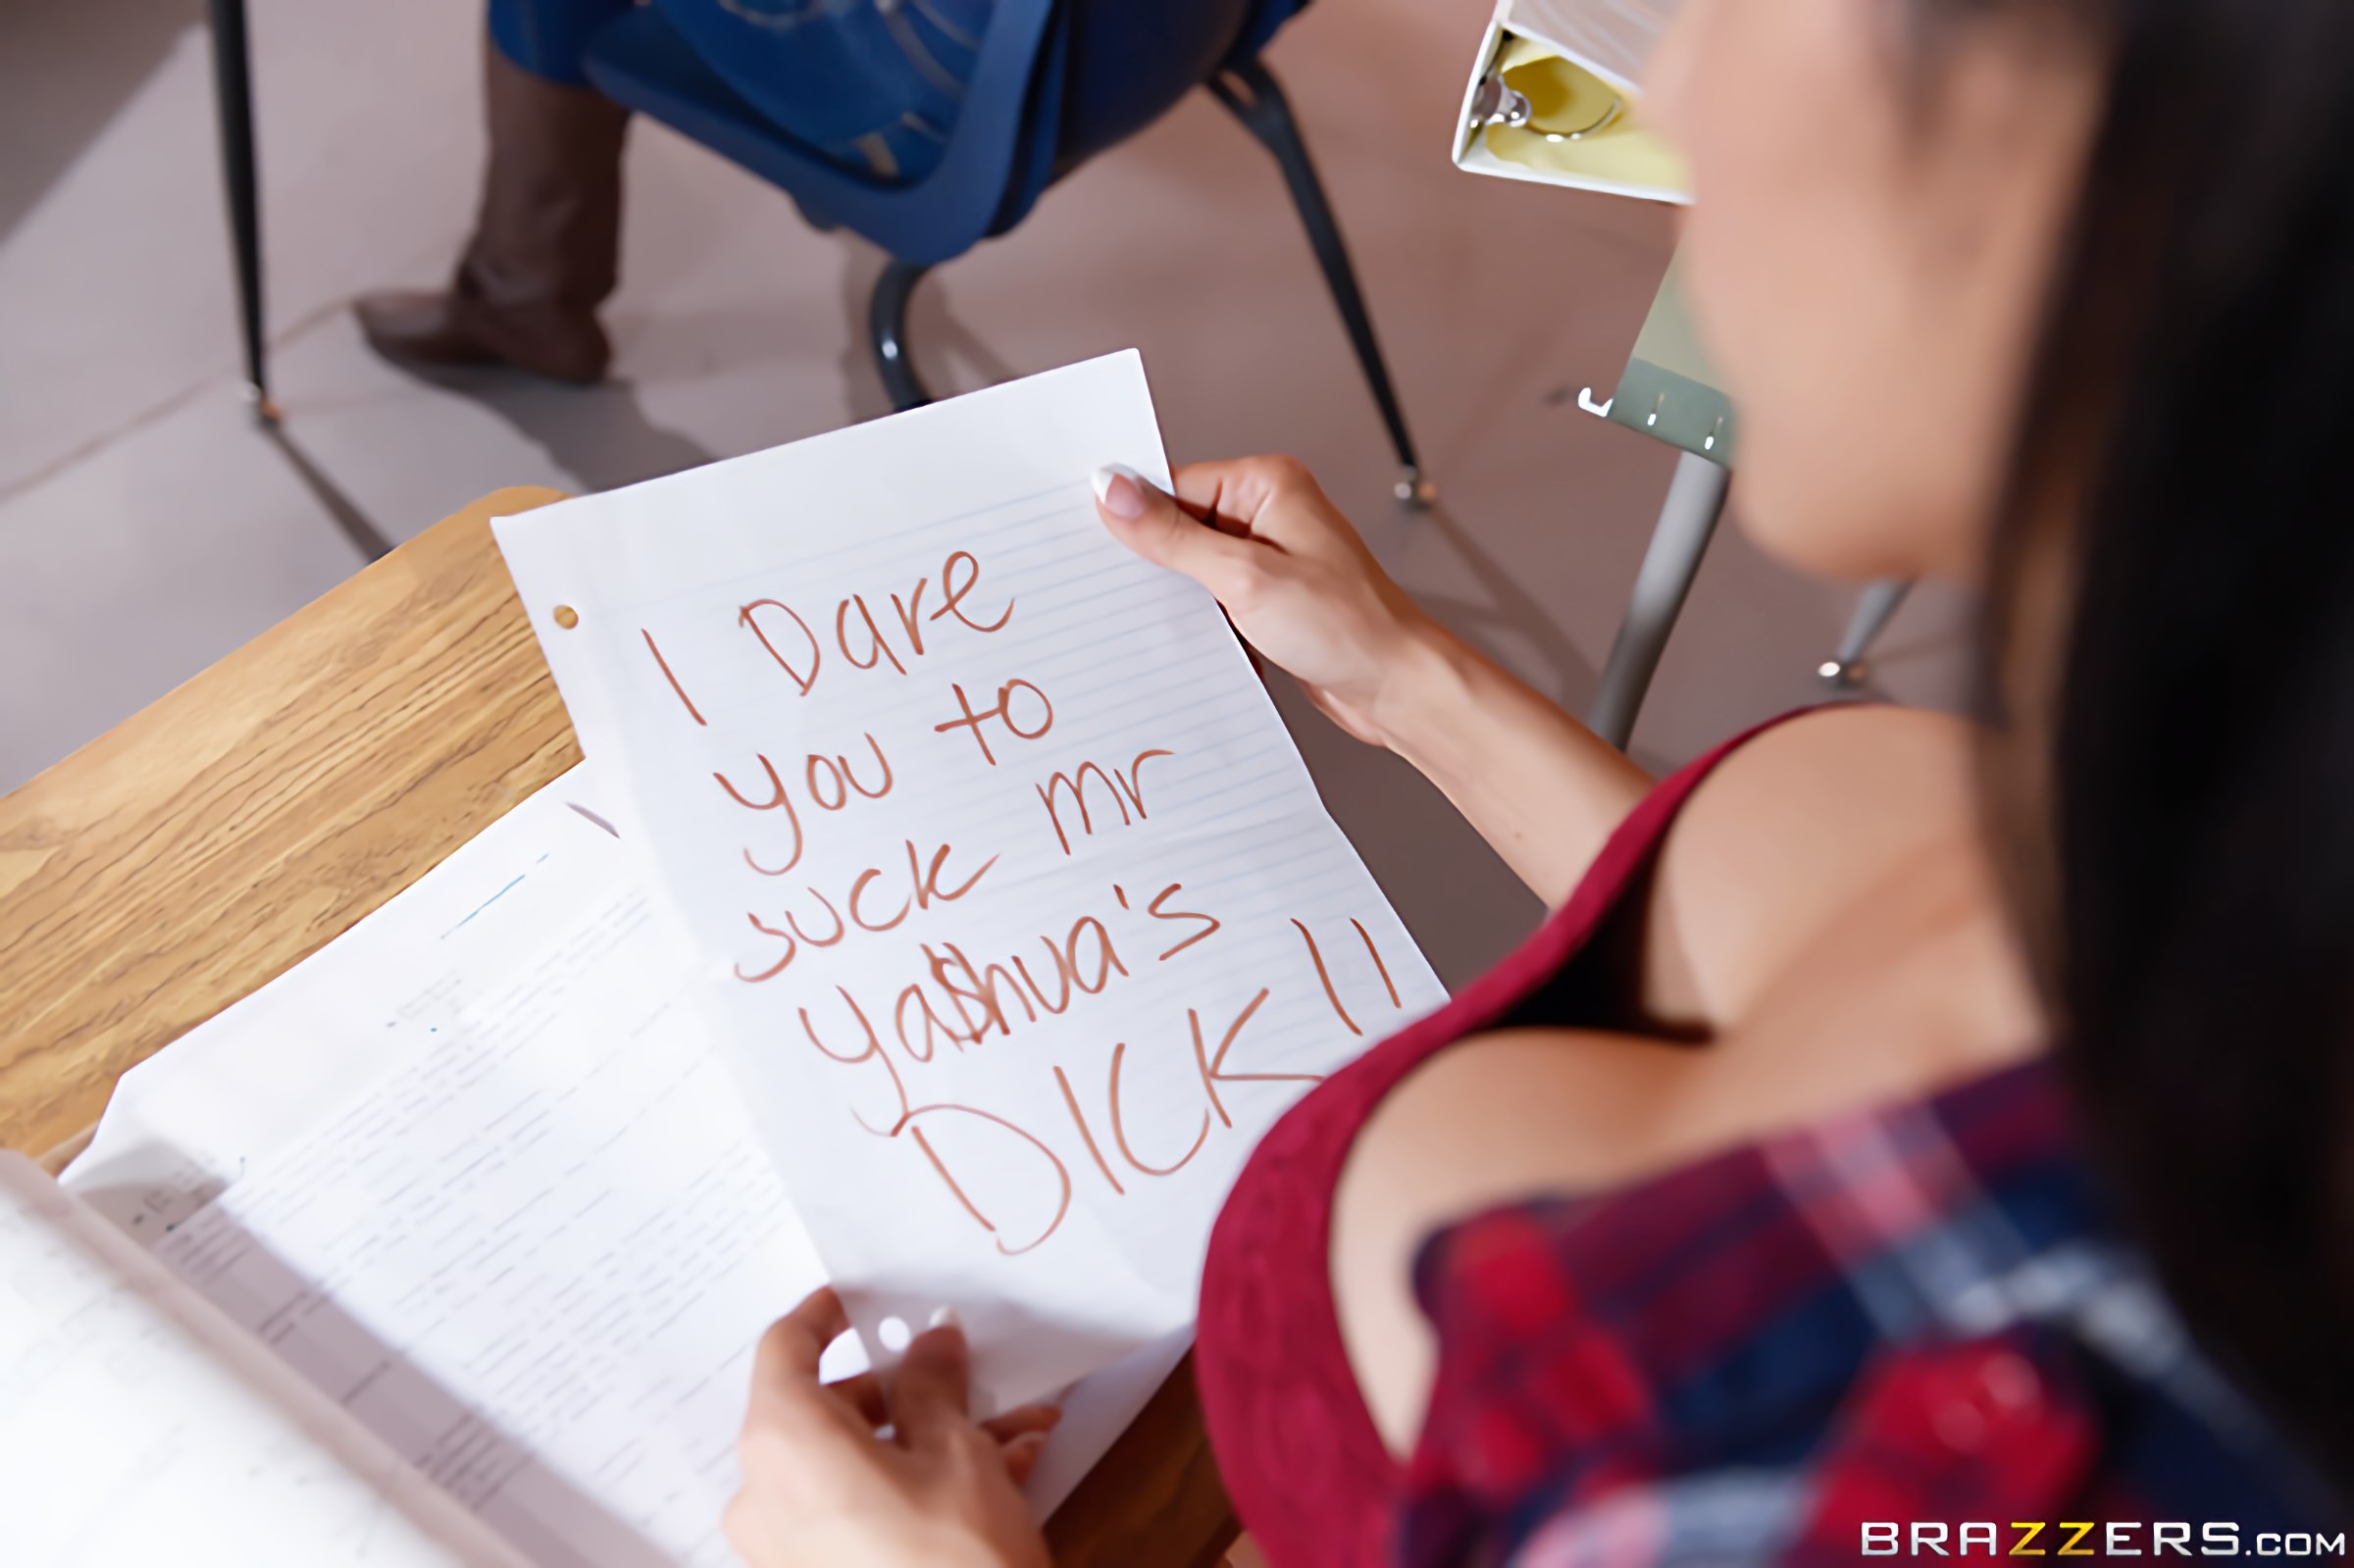 I Dare
you to
suck mr
yashua's
DICK!!
BRAZZERS.COM